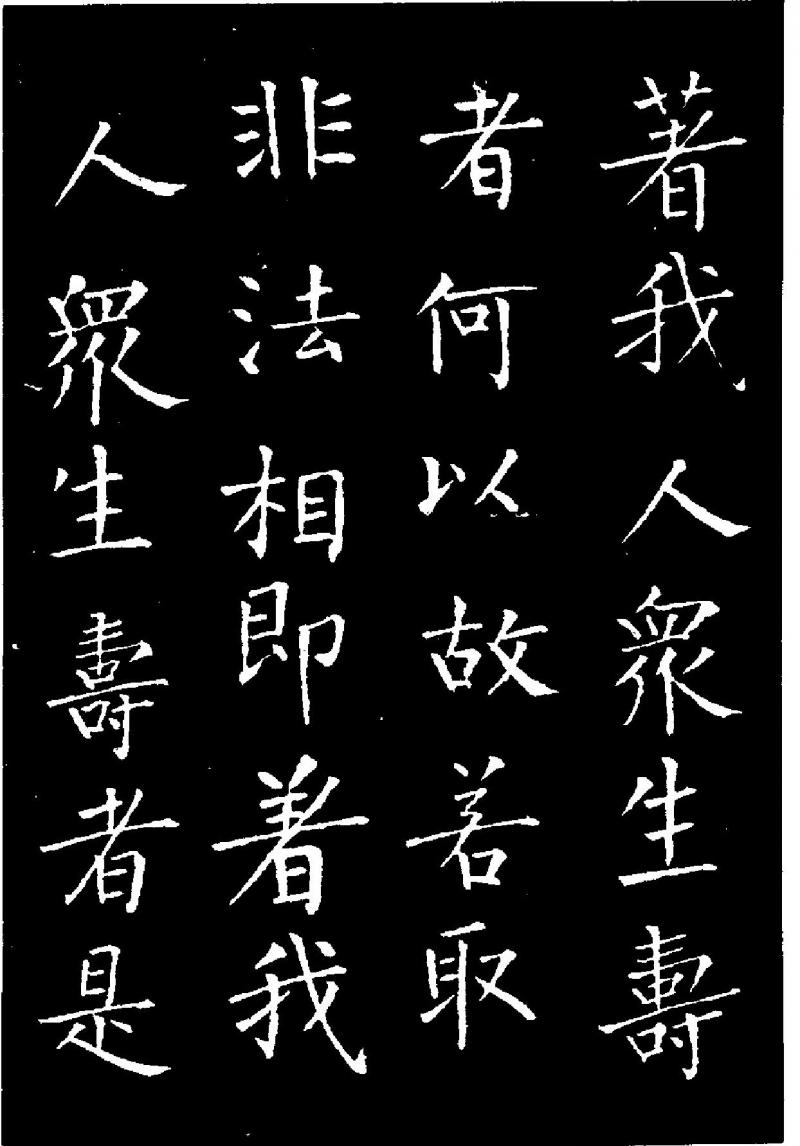 著我人眾生壽
者何以故若取
非法相即著我
人眾生壽者是